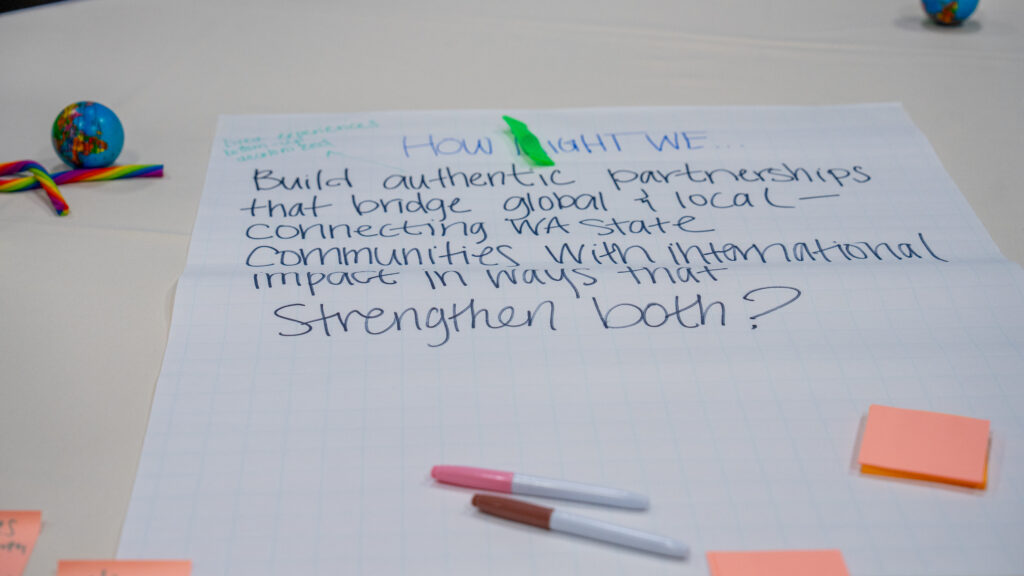 lived experiences
HOW MIGHT WE...
Build authentic partnerships
that bridge global & local —
connecting WA State
communities with international
impact in ways that
strengthen both?